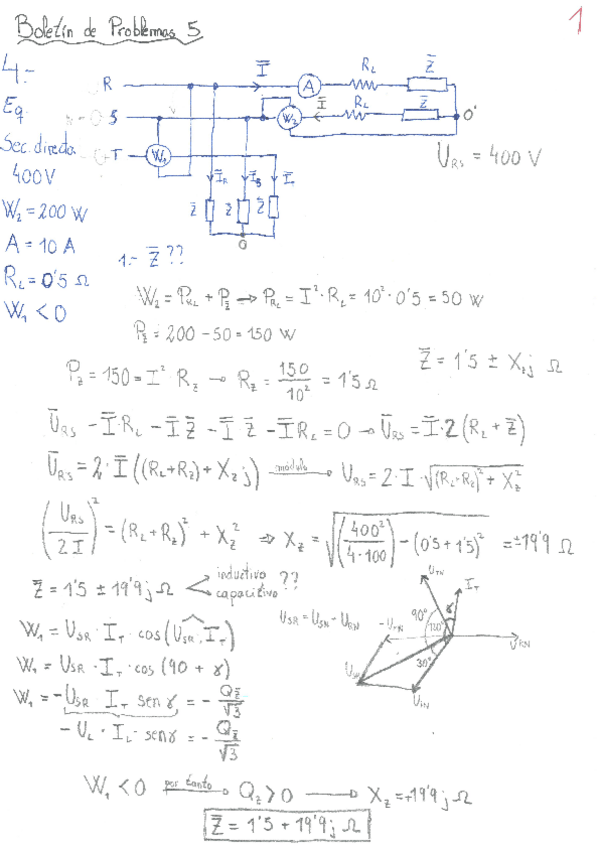 Boletín de Problemas 5
1
4.-
Eq
Sec. directa
400V
W₂ = 200 W
A = 10 A
R_L = 0'5 Ω
W₁ < 0
R
S
T
I̅
A
R_L
Z̅
W₂
I̅
R_L
Z̅
O'
W₁
I̅_R
I̅_S
Z̅
Z̅
Z̅
O
U_RS = 400 V
1.- Z̅ ??
W₂ = P_RL + P_Z̅ → P_RL = I² · R_L = 10² · 0'5 = 50 W
P_Z̅ = 200 - 50 = 150 W
P_Z̅ = 150 = I² R_Z → R_Z = 150/10² = 1'5 Ω
Z̅ = 1'5 ± X_Z j Ω
U̅_RS - I̅·R_L - I̅ Z̅ - I̅ Z̅ - I̅ R_L = 0 → U̅_RS = I̅·2 (R_L + Z̅)
U̅_RS = 2 · I̅ ((R_L + R_Z) + X_Z j) módulo → U_RS = 2 · I · √((R_L + R_Z)² + X_Z²)
(U_RS / 2 I)² = (R_L + R_Z)² + X_Z² ⇒ X_Z = √((400² / 4·100) - (0'5 + 1'5)²) = ±19'9 Ω
Z̅ = 1'5 ± 19'9 j Ω inductivo capacitivo ??
W₁ = U_SR · I_T · cos (U_SR, I_T)
U_SR = U_SN - U_RN
W₁ = U_SR · I_T · cos (90 + γ)
W₁ = - U_SR · I_T sen γ = - Q_Z̅ / √3
- U_L · I_L · sen γ = - Q_Z̅ / √3
U_TN
I_T
γ
90°
120°
30°
U_RN
U_SR
U_SN
W₁ < 0 por tanto → Q_Z > 0 → X_Z = +19'9 j Ω
Z̅ = 1'5 + 19'9 j Ω